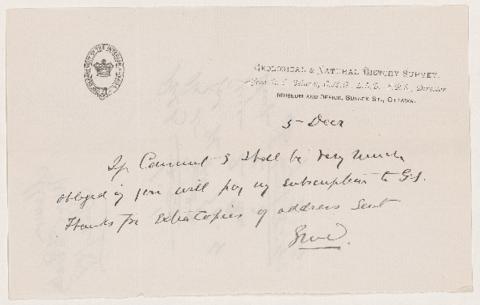 GEOLOGICAL & NATURAL HISTORY SURVEY.
Director
MUSEUM AND OFFICE, SUSSEX ST., OTTAWA.
5 Decr
If Council I shall be very much
obliged if you will pay my subscription to G.S.
Thanks for extra copies of address sent